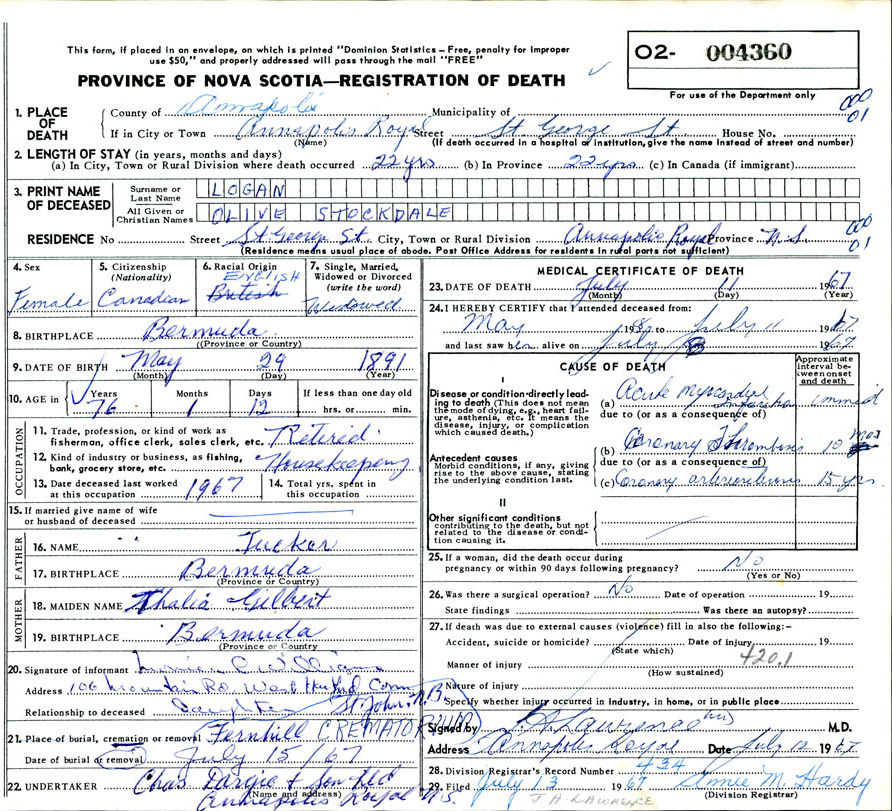 This form, if placed in an envelope, on which is printed "Dominion Statistics – Free, penalty for improper
use $50," and properly addressed will pass through the mail "FREE"
O2- 004360
PROVINCE OF NOVA SCOTIA—REGISTRATION OF DEATH
For use of the Department only
1. PLACE OF DEATH
County of Annapolis Municipality of
000
01
If in City or Town Annapolis Royal Street St George St House No.
(Name) (If death occurred in a hospital or institution, give the name instead of street and number)
2. LENGTH OF STAY (in years, months and days)
(a) In City, Town or Rural Division where death occurred 22 yrs (b) In Province 22 yrs (c) In Canada (if immigrant)
3. PRINT NAME OF DECEASED
Surname or Last Name LOGAN
All Given or Christian Names OLIVE STOCKDALE
RESIDENCE No Street St George St. City, Town or Rural Division Annapolis Royal Province N.S.
000
01
(Residence means usual place of abode. Post Office Address for residents in rural parts not sufficient)
4. Sex
Female
5. Citizenship
(Nationality)
Canadian
6. Racial Origin
ENGLISH
British
7. Single, Married,
Widowed or Divorced
(write the word)
Widowed
8. BIRTHPLACE Bermuda
(Province or Country)
9. DATE OF BIRTH May 29 1891
(Month) (Day) (Year)
10. AGE in
Years Months Days If less than one day old
76 1 12 hrs. or min.
OCCUPATION
11. Trade, profession, or kind of work as
fisherman, office clerk, sales clerk, etc. Retired
12. Kind of industry or business, as fishing,
bank, grocery store, etc. Housekeeping
13. Date deceased last worked
at this occupation 1967
14. Total yrs. spent in
this occupation
15. If married give name of wife
or husband of deceased
FATHER
16. NAME " " Tucker
17. BIRTHPLACE Bermuda
(Province or Country)
MOTHER
18. MAIDEN NAME Thalia Gilbert
19. BIRTHPLACE Bermuda
(Province or Country)
20. Signature of informant C. Williams
Address 106 Mountain Rd. West Htfd Conn
Relationship to deceased Daughter
St John, N.B.
21. Place of burial, cremation or removal Fernhill CREMATORIUM
Date of burial or removal July 15/67
22. UNDERTAKER Chas Dargie & Son Ltd
(Name and address)
Annapolis Royal N.S.
MEDICAL CERTIFICATE OF DEATH
23. DATE OF DEATH July 11 1967
(Month) (Day) (Year)
24. I HEREBY CERTIFY that I attended deceased from:
May 19 to July 11 1967
and last saw her alive on July 8 1967
CAUSE OF DEATH
Approximate
interval be-
tween onset
and death
I
Disease or condition directly lead-
ing to death (This does not mean
the mode of dying, e.g., heart fail-
ure, asthenia, etc. It means the
disease, injury, or complication
which caused death.)
(a) Acute Myocardial Infarction immed
due to (or as a consequence of)
Antecedent causes
Morbid conditions, if any, giving
rise to the above cause, stating
the underlying condition last.
(b) Coronary Thrombosis 10 mos
due to (or as a consequence of)
(c) Coronary arteriosclerosis 15 yrs.
II
Other significant conditions
contributing to the death, but not
related to the disease or condi-
tion causing it.
25. If a woman, did the death occur during
pregnancy or within 90 days following pregnancy? No
(Yes or No)
26. Was there a surgical operation? No Date of operation 19
State findings Was there an autopsy?
27. If death was due to external causes (violence) fill in also the following:–
Accident, suicide or homicide? Date of injury 19
(State which)
420.1
Manner of injury
(How sustained)
Nature of injury
Specify whether injury occurred in industry, in home, or in public place
Signed by J. A. Lawrence M.D.
Address Annapolis Royal Date July 12 1967
28. Division Registrar's Record Number 434
29. Filed July 13 1967 Aimee M. Hardy
(Division Registrar)
J A LAWRENCE